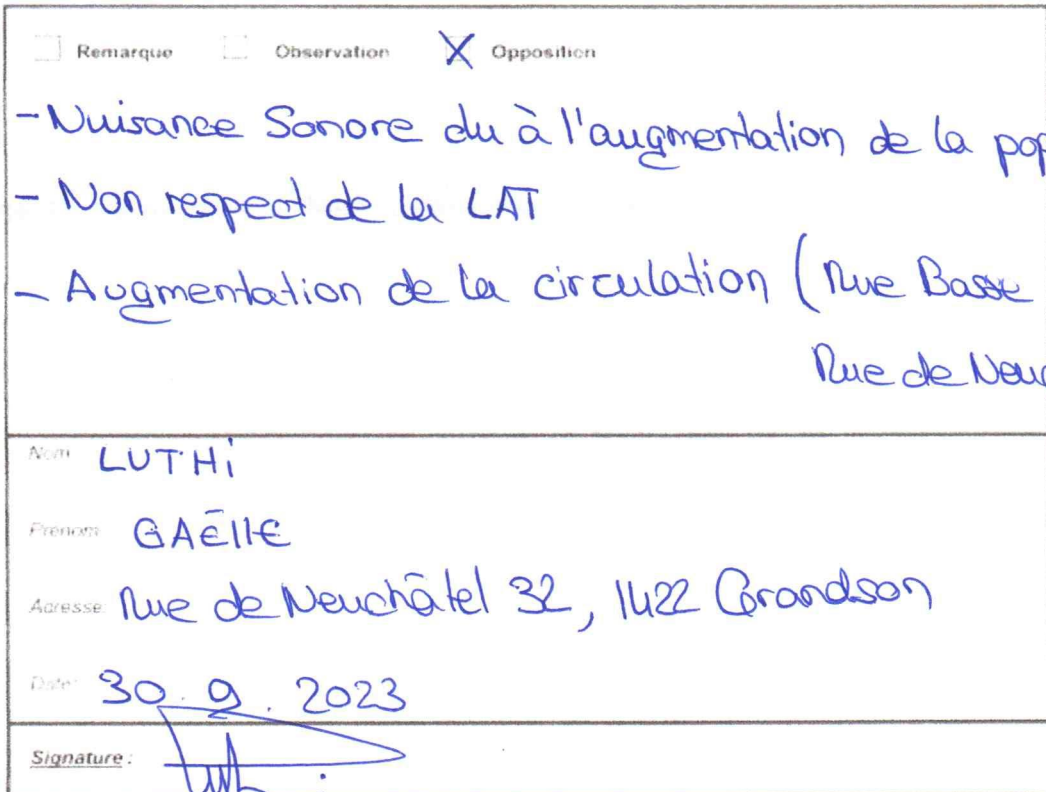 Remarque Observation X Opposition
- Nuisance Sonore du à l'augmentation de la pop
- Non respect de la LAT
- Augmentation de la circulation (Rue Basse
Rue de Neuc
Nom LUTHi
Prenom GAËllE
Adresse: Rue de Neuchâtel 32, 1422 Grandson
Date: 30. 9. 2023
Signature: